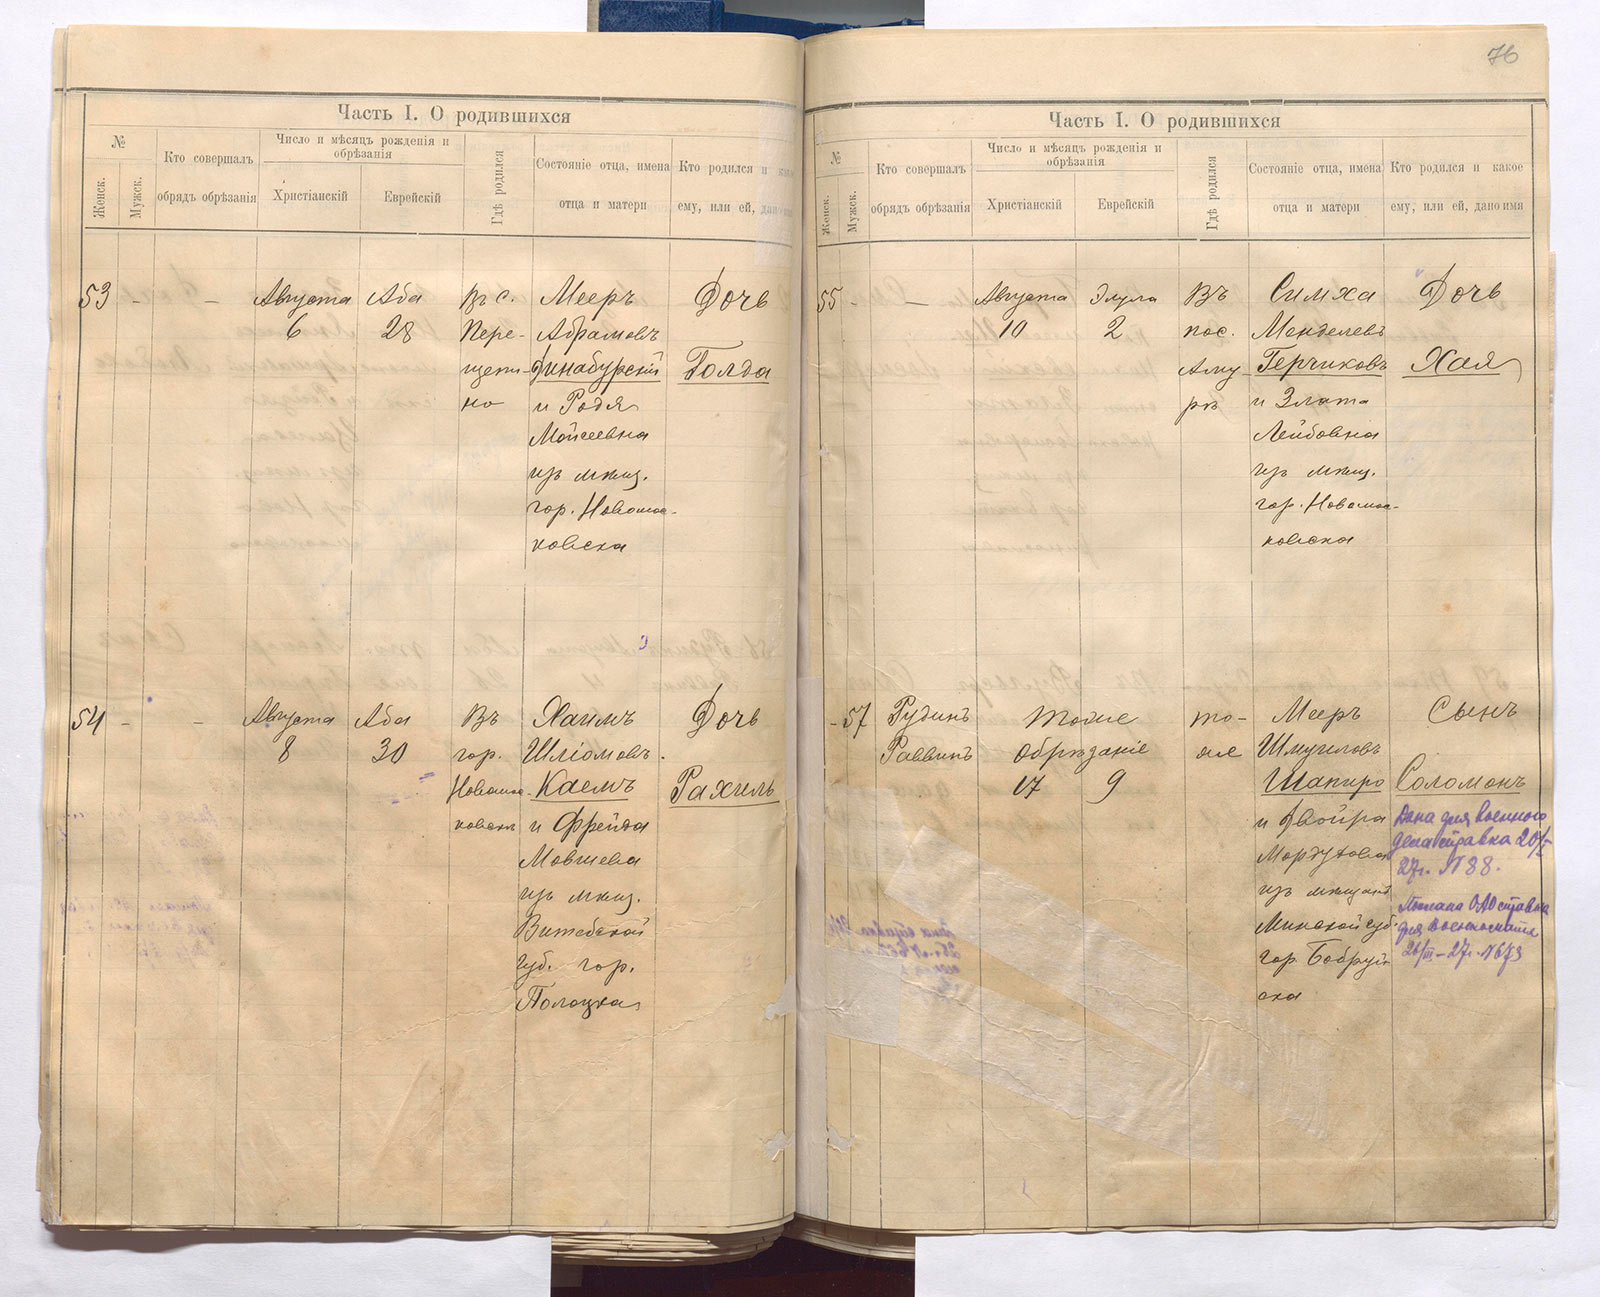 76
Часть I. О родившихся
№
Женск.
Мужск.
Кто совершалъ
обрядъ обрѣзанія
Число и мѣсяцъ рожденія и
обрѣзанія
Христіанскій
Еврейскій
Гдѣ родился
Состояніе отца, имена
отца и матери
Кто родился и
ему, или ей, дано
53 - - Августа Аба Въ с. Мееръ Дочь
6 28 Пере- Абрамовъ
щепи- Динабурскій Голда
но и Родя
Мойсеевна
изъ мѣщ.
гор. Новомос-
ковска
54 - - Августа Аба Въ Хаимъ Дочь
8 30 гор. Шліомовъ
Новомос- Каемъ Рахиль
ковскъ и Фрейда
Мовшева
изъ мѣщ.
Витебской
губ. гор.
Полоцка
Часть I. О родившихся
№
Женск.
Мужск.
Кто совершалъ
обрядъ обрѣзанія
Число и мѣсяцъ рожденія и
обрѣзанія
Христіанскій
Еврейскій
Гдѣ родился
Состояніе отца, имена
отца и матери
Кто родился и какое
ему, или ей, дано имя
55 - - Августа Элула Въ Симха Дочь
10 2 пос. Менделевъ
Аму- Герчиковъ Хая
ръ и Злата
Лейбовна
изъ мѣщ.
гор. Новомос-
ковска
- 57 Рудинъ тоже то- Мееръ Сынъ
Раввинъ обрѣзаніе же Шмуиловъ
17 9 Шапиро Соломонъ
и Двойра
Мордуховна
изъ мѣщанъ
Минской губ.
гор. Бобруй-
ска
Дана для военного
дела справка 20/I
27г. №88.
справка
26/III-27г. №673